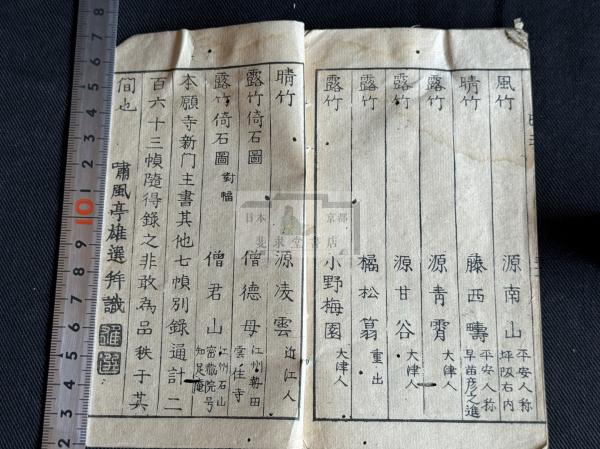 風竹 源南山 平安人称坪阪右内
晴竹 藤西疇 平安人称早苗彦之進
露竹 源青霄 大津人
露竹 源甘谷 大津人
露竹 橘松篛 重出
露竹 小野梅園 大津人
晴竹 源凌雲 近江人
露竹倚石圖 僧德母 江州勢田雲住寺
露竹倚石圖 對幅 僧君山 江州石山密藏院号知足庵
本願寺新门主書其他七幀別録通計二
百六十三幀隨得録之非敢為品秩于其
间也
嘯風亭雄選并識
日本 京都
書店